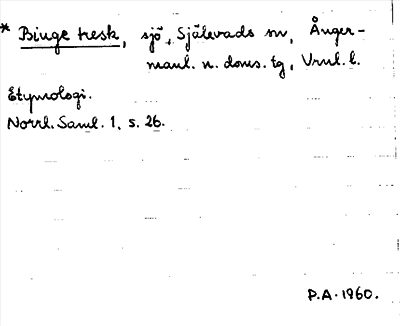 * Binge tresk, sjö, Själevads sn, Ånger-
manl. n. doms. tg, Vrnl. l.
Etymologi.
Norrl. Saml. 1, s. 26.
P.A. 1960.